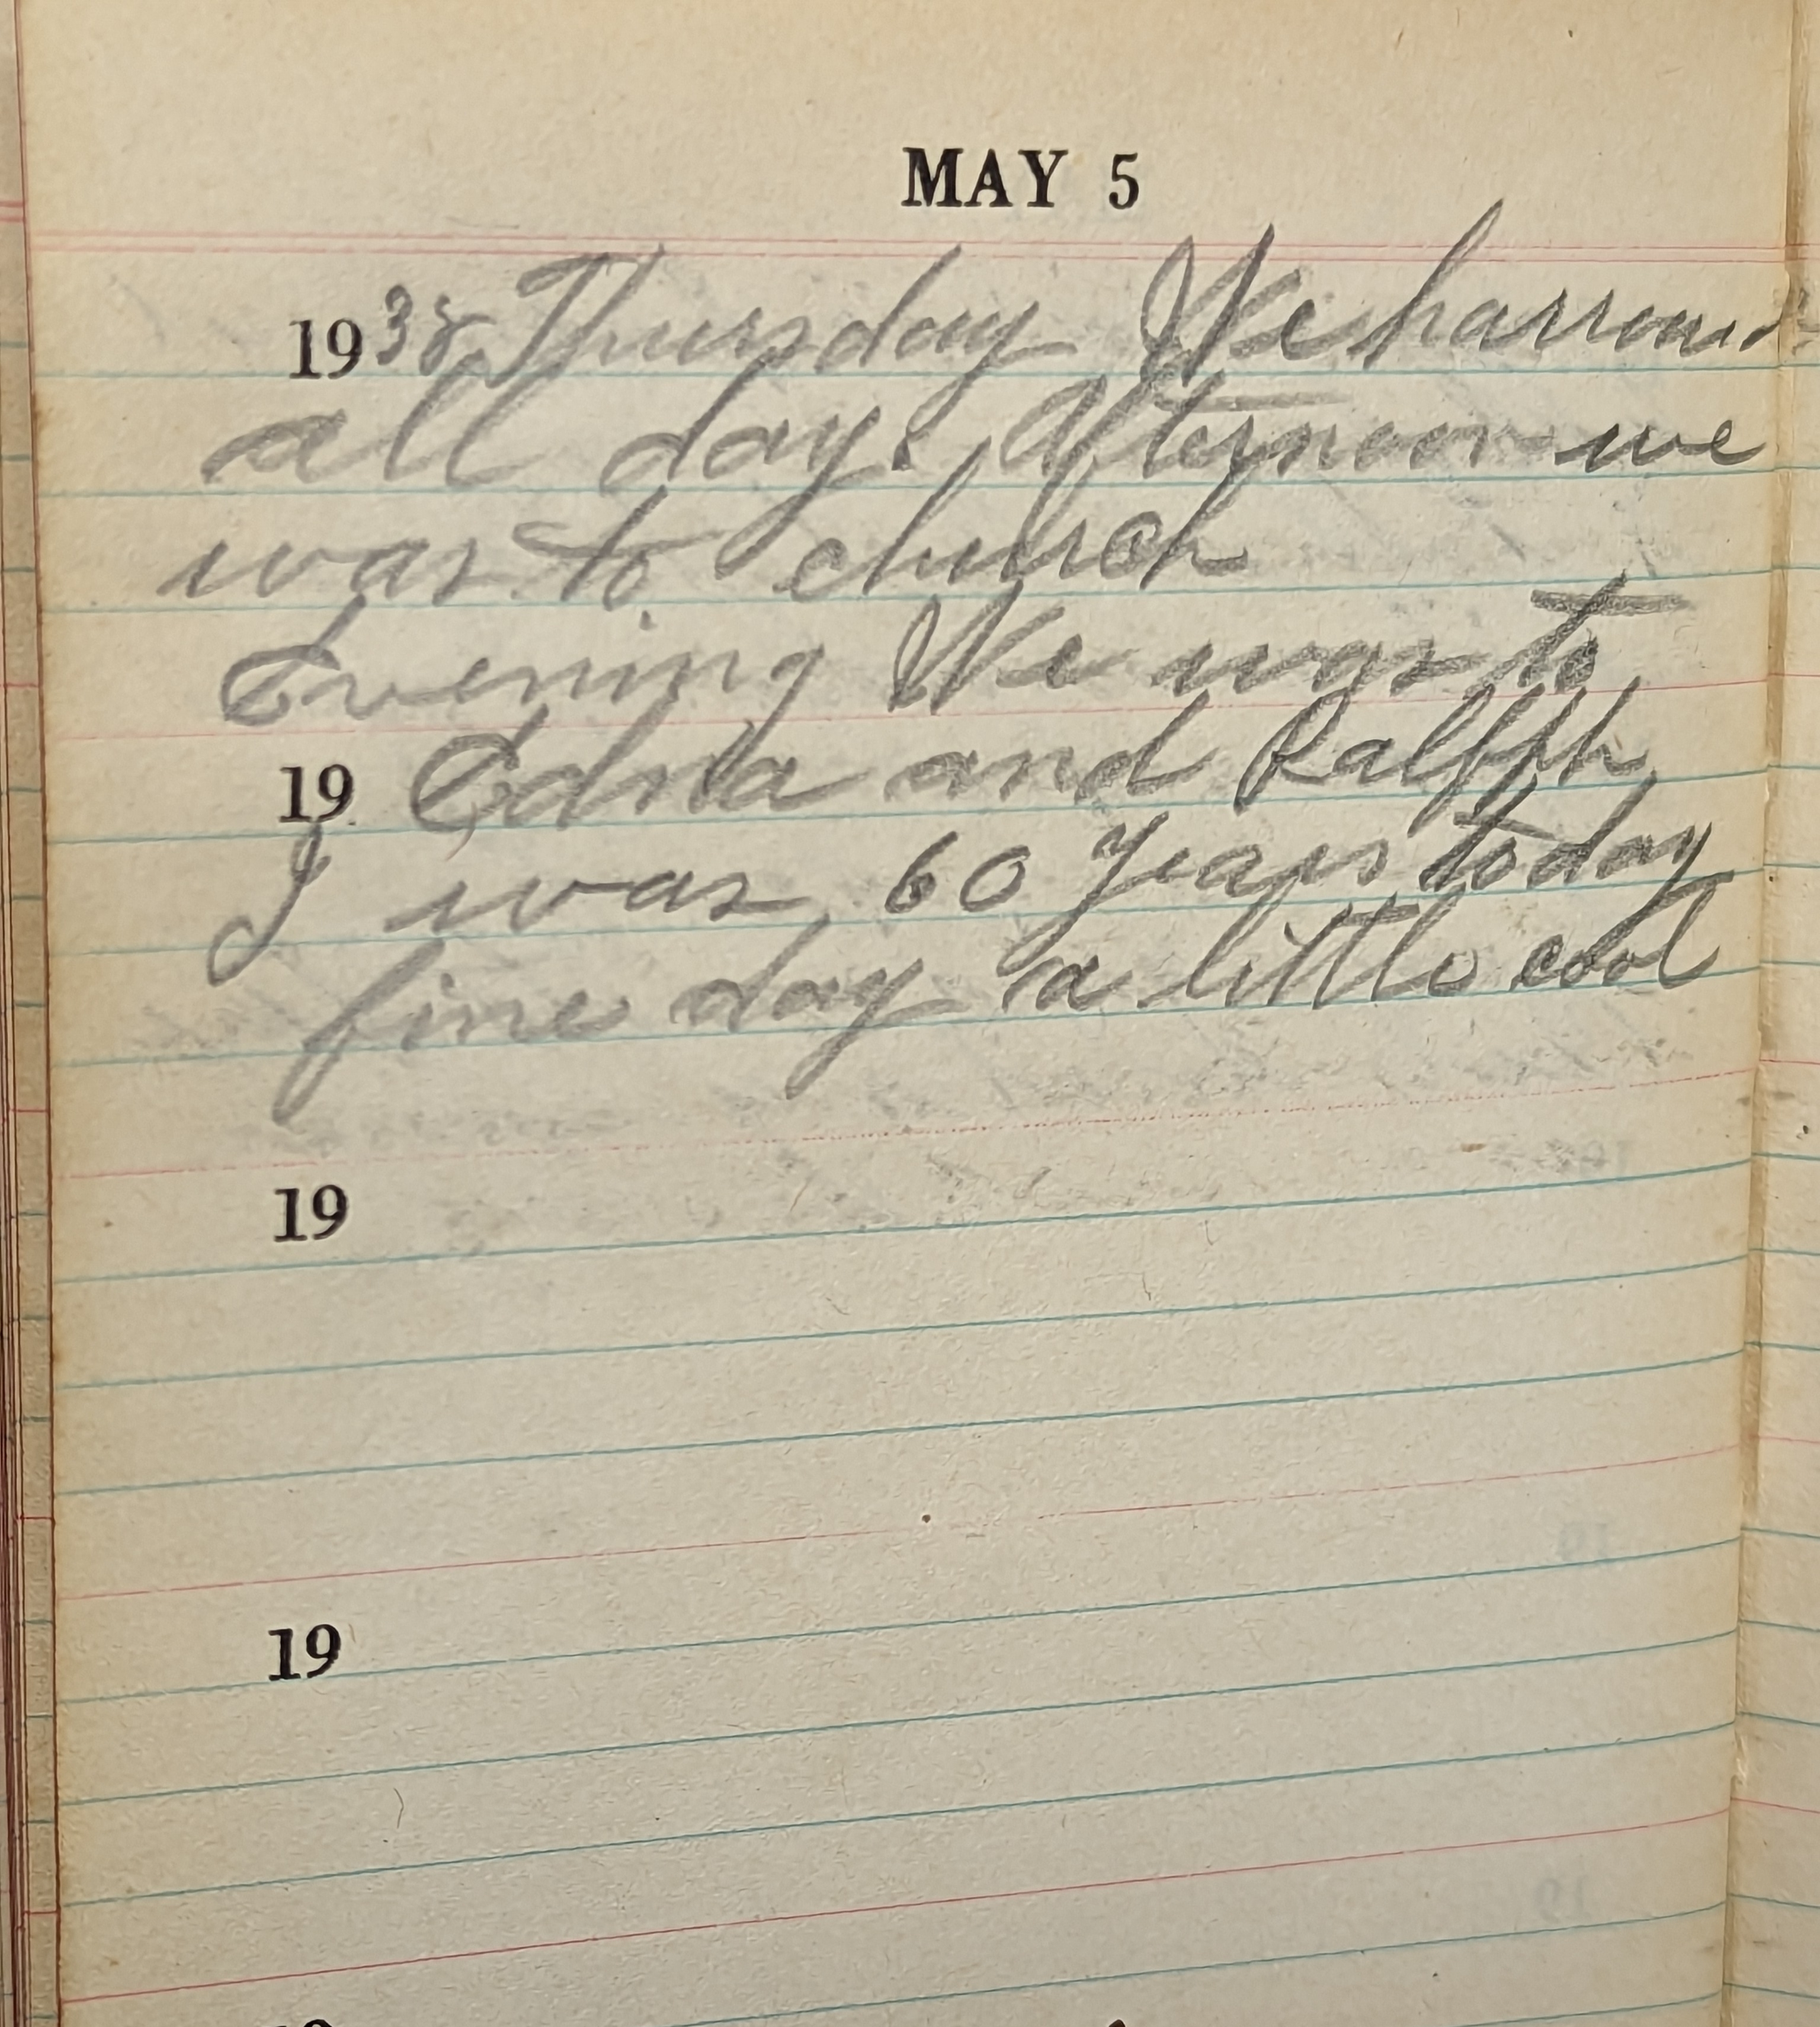 MAY 5
1938 Thursday We harrowed
all day. Afternoon we
was to church
Evening We was to
19 Edna and Ralph
I was 60 years today
fine day a little cool
19
19